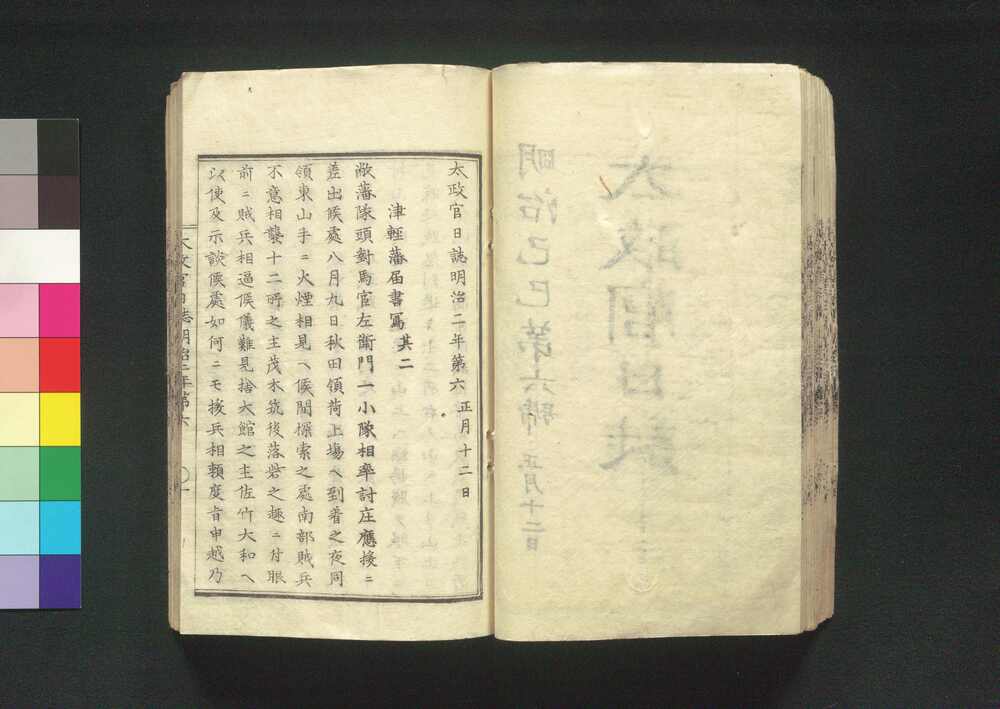 太政官日誌明治二年第六 正月十二日
津輕藩届書寫 其二
敝藩隊頭對馬官左衛門一小隊相率討庄應援ニ
差出候處八月九日秋田領荷上場ヘ到着之夜同
領東山手ニ火煙相見ヘ候間探索之處南部賊兵
不意相襲十二所之主茂木筑後落砦之趣ニ付眼
前ニ賊兵相逼候儀難見捨大館之主佐竹大和ヘ
以使及示談候處如何ニモ援兵相頼度旨申越乃
太政官日誌明治二年第六 〇一
太政官日誌
明治己巳第六號 正月十二日